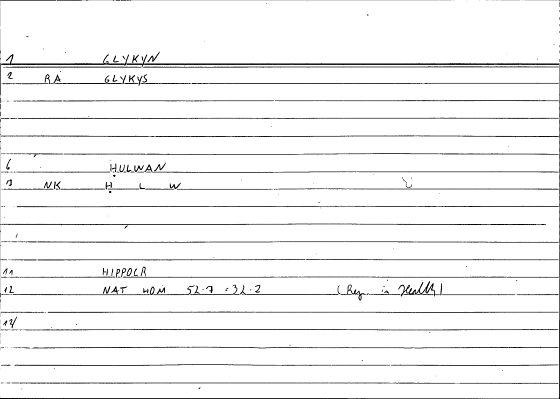 1 GLYKYN
2 RA GLYKYS
6 ḤULWAN
NK Ḥ L W
11 HIPPOCR
12 NAT HOM 52.7 = 32.2 (Reg. in Health)
13/